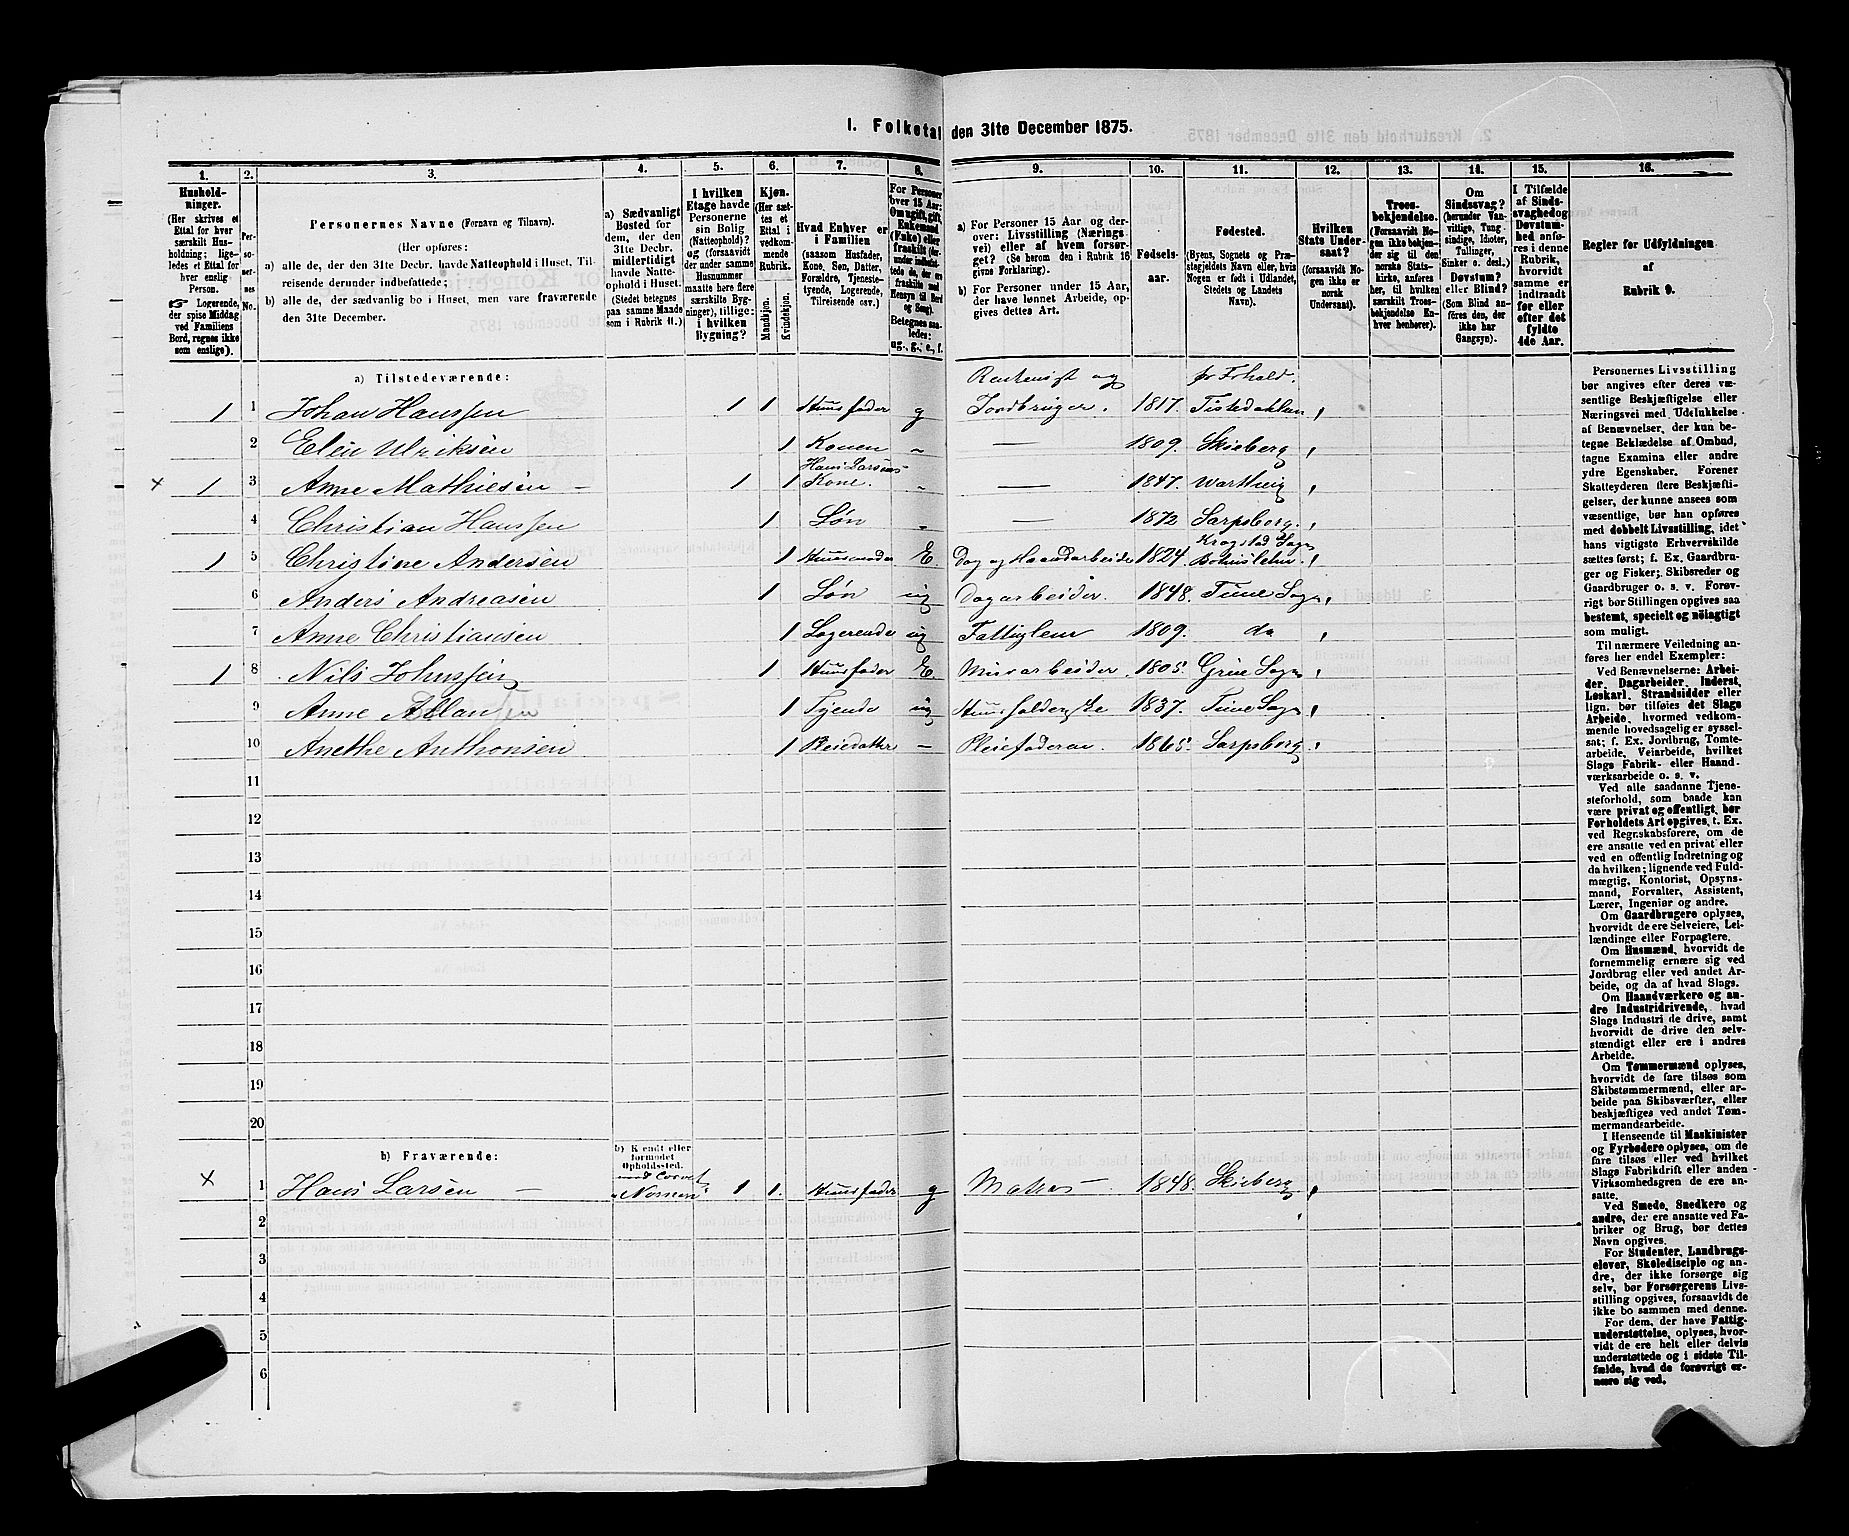 1. Folketal den 31te December 1875.
1. 2. 3. 4. 5. 6. 7. 8. 9. 10. 11. 12. 13. 14. 15. 16.
Hushold-
ninger.
(Her skrives et
Ettal for hver
særskilt Hus-
holdning; lige-
ledes et Ettal for
hver enslig
Person.
☞ Logerende,
der spise Middag
ved Familiens
Bord, regnes ikke
som enslige).
Per-
so-
ner-
nes
No.
Personernes Navne (Fornavn og Tilnavn).
(Her opføres:
a) alle de, der den 31te Decbr. havde Natteophold i Huset, Til-
reisende derunder indbefattede;
b) alle de, der sædvanlig bo i Huset, men vare fraværende
den 31te December.
a) Sædvanligt
Bosted for
dem, der den
31te Decbr.
midlertidigt
havde Natte-
ophold i Huset.
(Stedet betegnes
paa samme Maade
som i Rubrik 11.)
I hvilken
Etage havde
Personerne
sin Bolig
(Natteophold)?
og (forsaavidt
der under samme
Husnummer
maatte høre flere
særskilte Byg-
ninger), tillige:
i hvilken
Bygning?
Kjøn.
(Her sæt-
tes et
Ettal i
vedkom-
mende
Rubrik.
Mandkjøn.
Kvindekjøn.
Hvad Enhver er
i Familien
(saasom Husfader,
Kone, Søn, Datter,
Forældre, Tjeneste-
tyende, Logerende,
Tilreisende osv.)
For Personer
over 15 Aar:
Om ugift, gift,
Enkemand
(Enke) eller
fraskilt
Betegnes saa-
ledes:
ug., g., e., f.
a) For Personer 15 Aar og der-
over: Livsstilling (Nærings-
vei) eller af hvem forsør-
get? (Se herom den i Rubrik 16
givne Forklaring).
b) For Personer under 15 Aar,
der have lønnet Arbeide, op-
gives dettes Art.
Fødsels-
aar.
Fødested.
(Byens, Sognets og Præ-
stegjeldets Navn eller, hvis
Nogen er født i Udlandet,
Stedets og Landets
Navn).
Hvilken
Stats Under-
saat?
(forsaavidt No-
gen ikke er
norsk
Undersaat).
Troes-
bekjendelse.
(Forsaavidt No-
gen ikke bekjen-
der sig til den
norske Stats-
kirke, anføres
her, til hvilken
særskilt Troes-
bekjendelse En-
hver henhører).
Om
Sindssvag?
(herunder Van-
vittige, Tung-
sindige, Idioter,
Tullinger,
Sinker o. desl.)
Døvstum?
eller Blind?
(Som Blind an-
føres den, der
ikke har
Gangsyn).
I Tilfælde
af Sinds-
svaghed og
Døvstum-
hed anfø-
res i denne
Rubrik,
hvorvidt
samme er
indtraadt
før eller
efter det
fyldte
4de Aar.
Regler for Udfyldningen
af
Rubrik 9.
a) Tilstedeværende:
Rentenist og pr Frhald.
1 1 Johan Hanssen 1 1 Huusfader g Jordbruger. 1817. Tistedahlen
2 Elen Ulriksen 1 Konen " — 1809. Skieberg
Hans Larsens
× 1 3 Anne Mathiesen – 1 1 Kone. " — 1847. Warteig
4 Christian Hanssen 1 Søn " — 1872 Sarpsborg.
Krogstad Sogn
1 5 Christine Andersen 1 Huusmoder E Dag og Haandarbeide 1824. Bohuslehn
6 Anders Andreasen 1 Søn ug Dagarbeider. 1848. Tune Sogn
7 Anne Christiansen 1 Logerende ug Fattiglem 1809. do
1 8 Nils Johnssen 1 Huusfader E Murarbeider 1805. Grue Sogn
9 Anne 1 Tyende ug Huusholderske 1837. Tune Sogn
10 Anethe Anthonsen 1 Pleiedatter – Pleiefaderen. 1865. Sarpsborg
11
12
13
14
15
16
17
18
19
20
b) Fraværende:
b) Kjendt eller
formodet
Opholdssted.
med Corvet
× 1 Hans Larsen – "Nornen" 1 1. Huusfader g Matros – 1848. Skieberg
2
3
4
5
6
Personernes Livsstilling
bør angives efter deres væ-
sentlige Beskjæftigelse eller
Næringsvei med Udelukkelse
af Benævnelser, der kun be-
tegne Beklædelse af Ombud,
tagne Examina eller andre
ydre Egenskaber. Forener
Skatteyderen flere Beskjæfti-
gelser, der kunne ansees som
væsentlige, bør han opføres
med dobbelt Livsstilling, idet
hans vigtigste Erhvervskilde
sættes først; f. Ex. Gaardbru-
ger og Fisker; Skibsreder og
Gaardbruger o. s. v. Forøv-
rigt bør Stillingen opgives saa
bestemt, specielt og nöiagtigt
som muligt.
Til nærmere Veiledning an-
føres her endel Exempler:
Ved Benævnelserne: Arbei-
der, Dagarbeider, Inderst,
Løskarl, Strandsidder eller
lign. bør tilføies det Slags
Arbeide, hvormed vedkom-
mende hovedsagelig er syssel-
sat; f. Ex. Jordbrug, Tomte-
arbeide, Veiarbeide, hvilket
Slags Fabrik- eller Haand-
værksarbeide o. s. v.
Ved alle saadanne Tjene-
steforhold, som baade kan
være privat og offentligt, bør
Forholdets Art opgives, t. Ex.
ved Regnskabsførere, om de
ere ansatte ved en privat eller
ved en offentlig Indretning og
da hvilken; lignende ved Fuld-
mægtig, Kontorist, Opsyns-
mand, Forvalter, Assistent,
Lærer, Ingeniør og andre.
Om Gaardbrugere oplyses,
hvorvidt de ere Selveiere, Lei-
lændinge eller Forpagtere.
Om Husmænd, hvorvidt de
fornemmelig ernære sig ved
Jordbrug eller ved andet Ar-
beide, og da af hvad Slags.
Om Haandværkere og an-
dre Industridrivende, hvad
Slags Industri de drive, samt
hvorvidt de drive den selv-
stændigt eller ere i andres
Arbeide.
Om Tømmermænd oplyses,
hvorvidt de fare tilsøs som
Skibstømmermænd, eller ar-
beide paa Skibsværfter, eller
beskjæftiges ved andet Tøm-
mermandsarbeide.
I Henseende til Maskinister
og Fyrbødere oplyses, om de
fare tilsøs eller ved hvilket
Slags Fabrikdrift eller anden
Virksomhedsgren de ere an-
satte.
Ved Smede, Snedkere og
andre, der ere ansatte ved Fa-
briker og Brug, bør dettes
Navn opgives.
For Studenter, Landbrugs-
elever, Skoledisciple og an-
dre, der ikke forsørge sig
selv, bør Forsørgerens Livs-
stilling opgives, forsaavidt de
ikke bo sammen med denne.
For dem, der have Fattig-
understøttelse, oplyses, hvor-
vidt de ere helt eller delvis
understøttede og i sidste Til-
fælde, hvad de forøvrigt er-
nære sig ved.